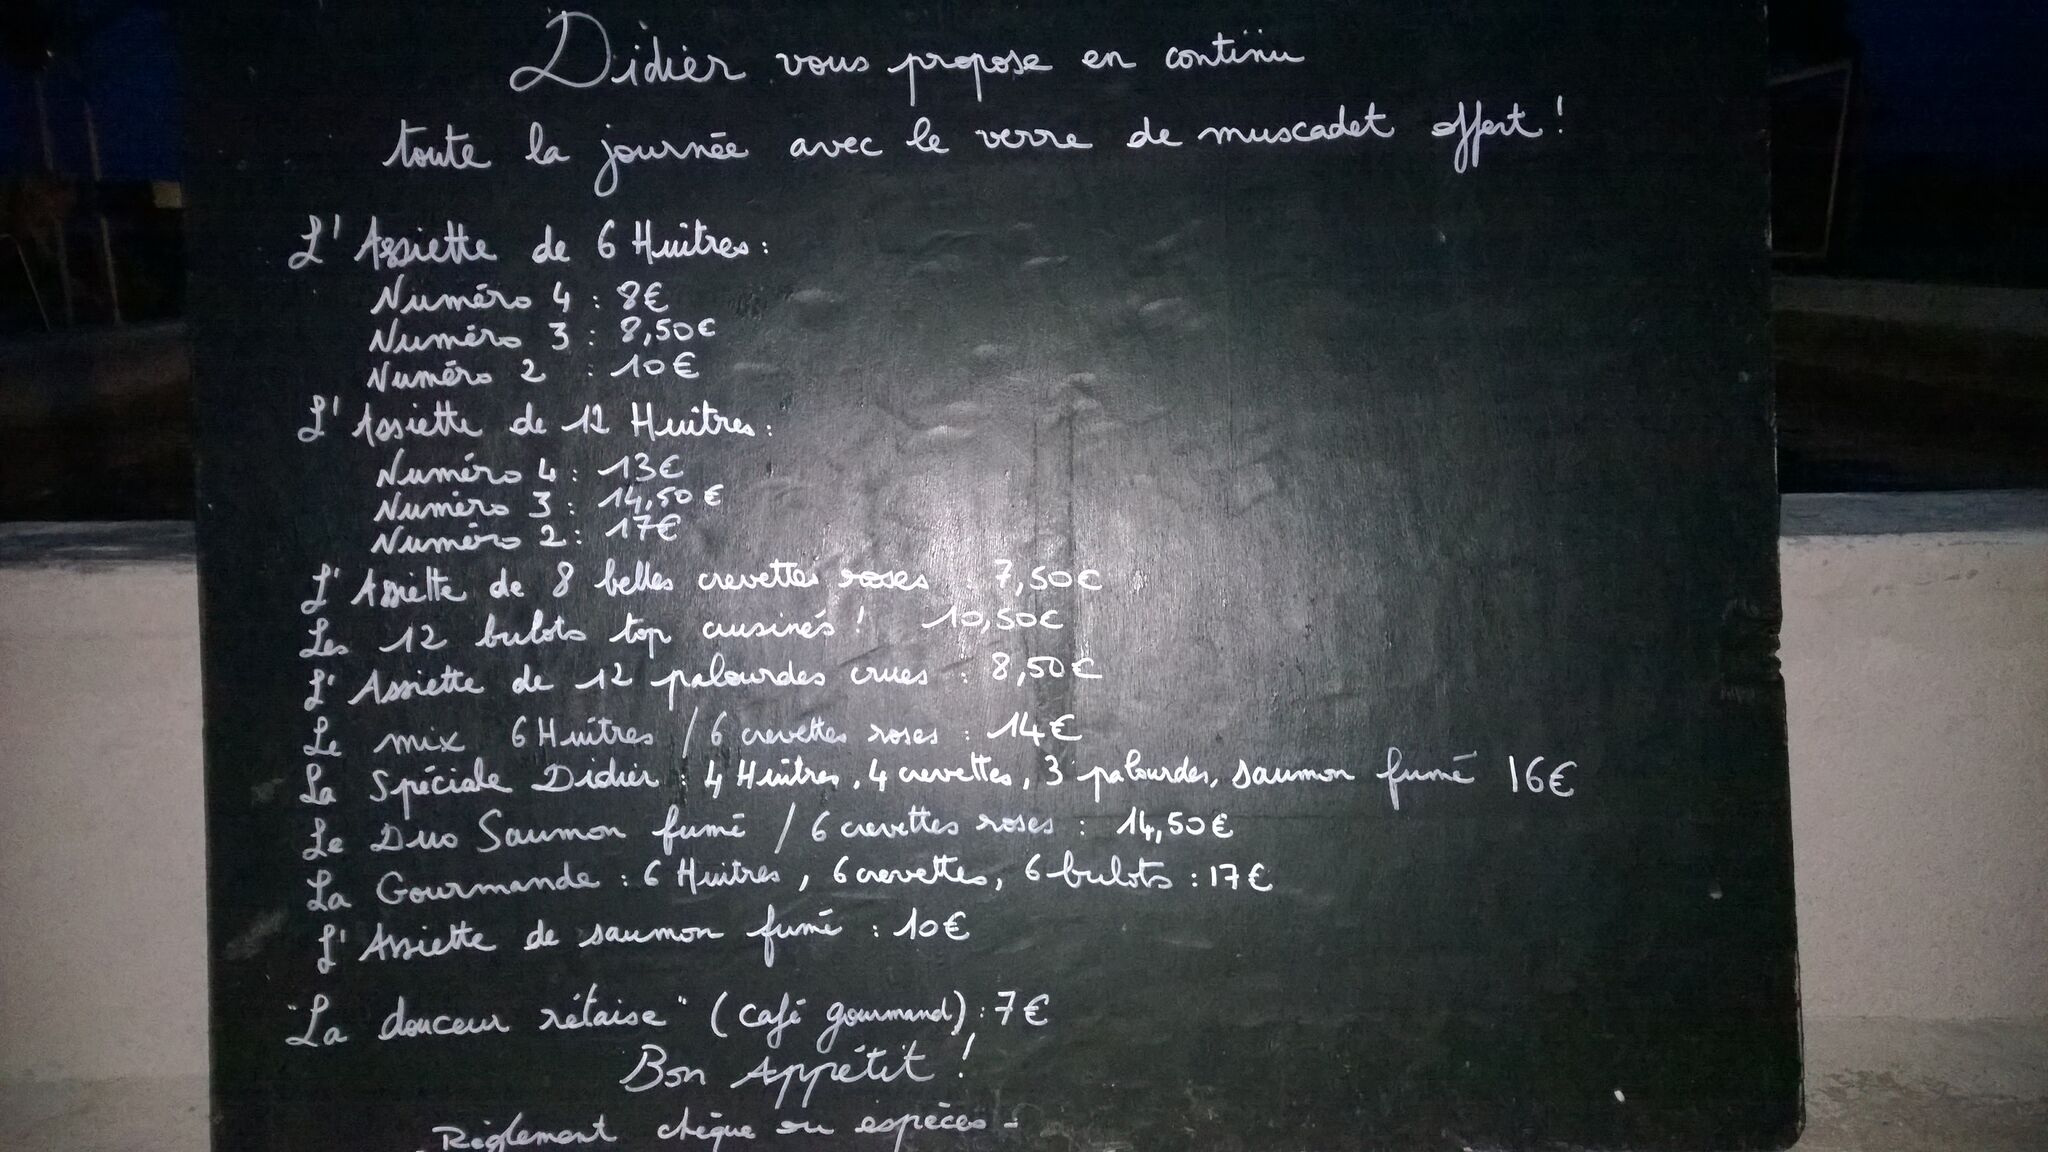 Didier vous propose en continu
toute la journée avec le verre de muscadet offert !
L'Assiette de 6 Huîtres :
Numéro 4 : 8€
Numéro 3 : 8,50€
Numéro 2 : 10€
L'Assiette de 12 Huîtres :
Numéro 4 : 13€
Numéro 3 : 14,50€
Numéro 2 : 17€
L'Assiette de 8 belles crevettes roses : 7,50€
Les 12 bulots top cuisinés ! 10,50€
L'Assiette de 12 palourdes crues : 8,50€
Le mix 6 Huîtres / 6 crevettes roses : 14€
La Spéciale Didier : 4 Huîtres, 4 crevettes, 3 palourdes, saumon fumé 16€
Le Duo Saumon fumé / 6 crevettes roses : 14,50€
La Gourmande : 6 Huîtres, 6 crevettes, 6 bulots : 17€
L'Assiette de saumon fumé : 10€
"La douceur rétaise" (café gourmand) : 7€
Bon Appétit !
Règlement chèque ou espèces -